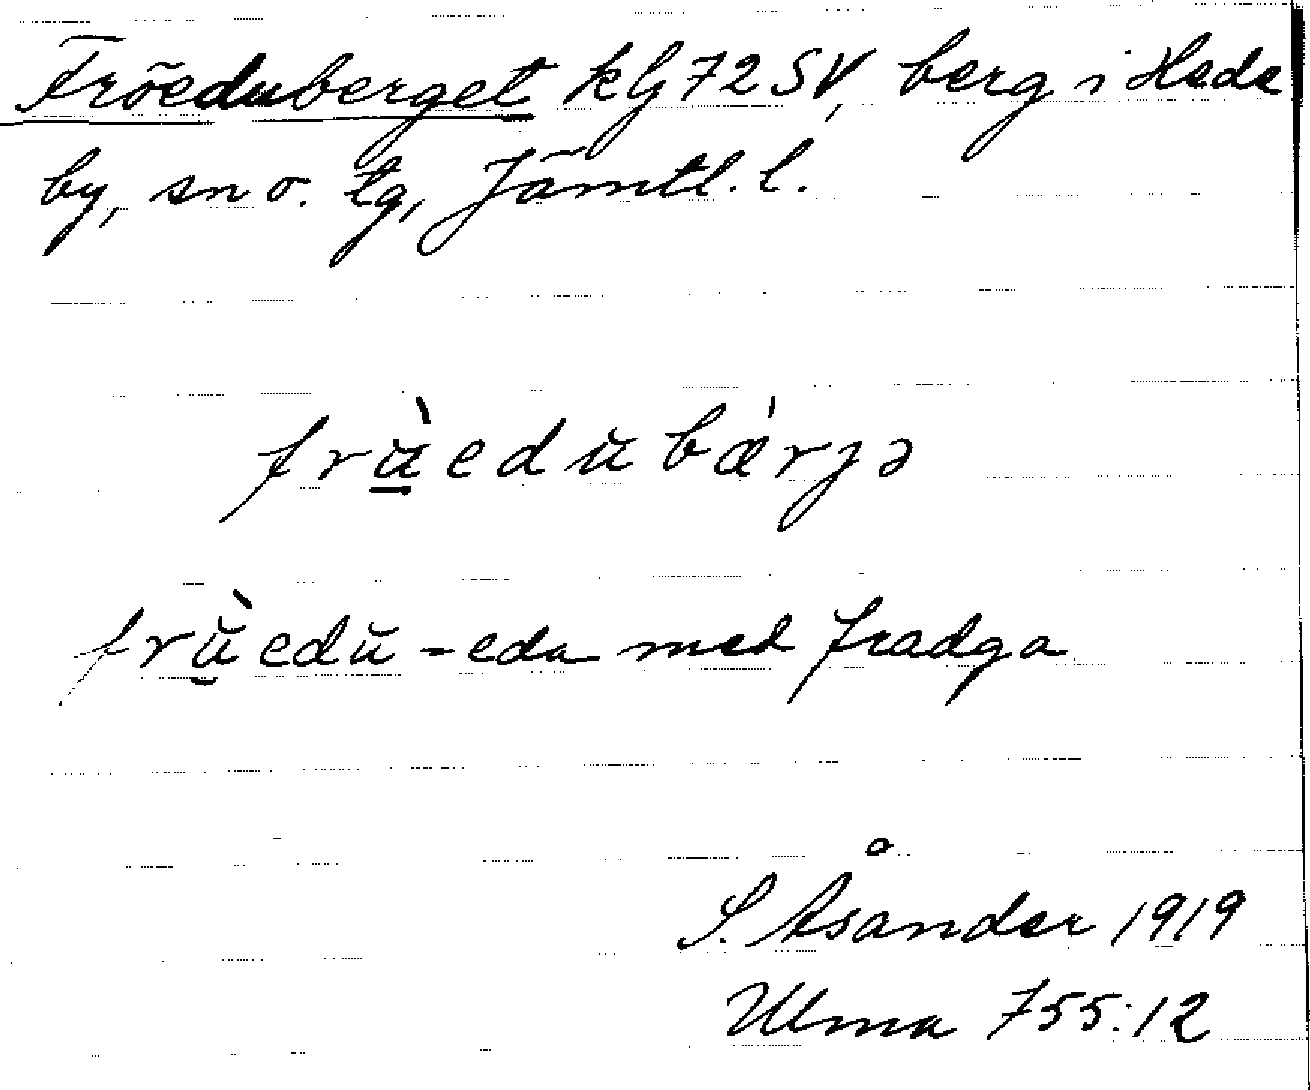 Fröeduberget kg 72 SV, berg i Hede
by, sn o. tg, Jämtl. l.
frù̱edŭbæ̀rjə
frù̱edŭ - eda med fradga
S. Åsander 1919
Ulma 755:12